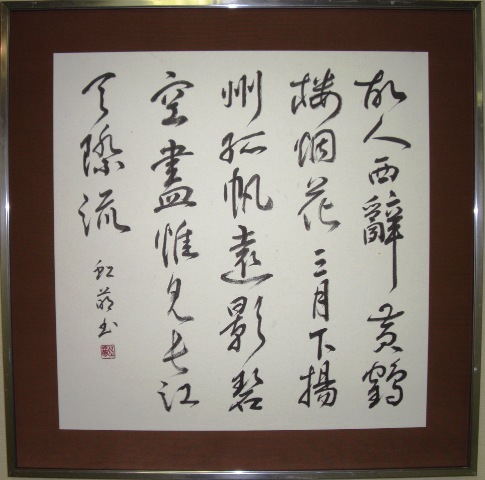 故人西辭黄鶴
楼烟花三月下揚
州孤帆遠影碧
空盡惟見長江
天際流